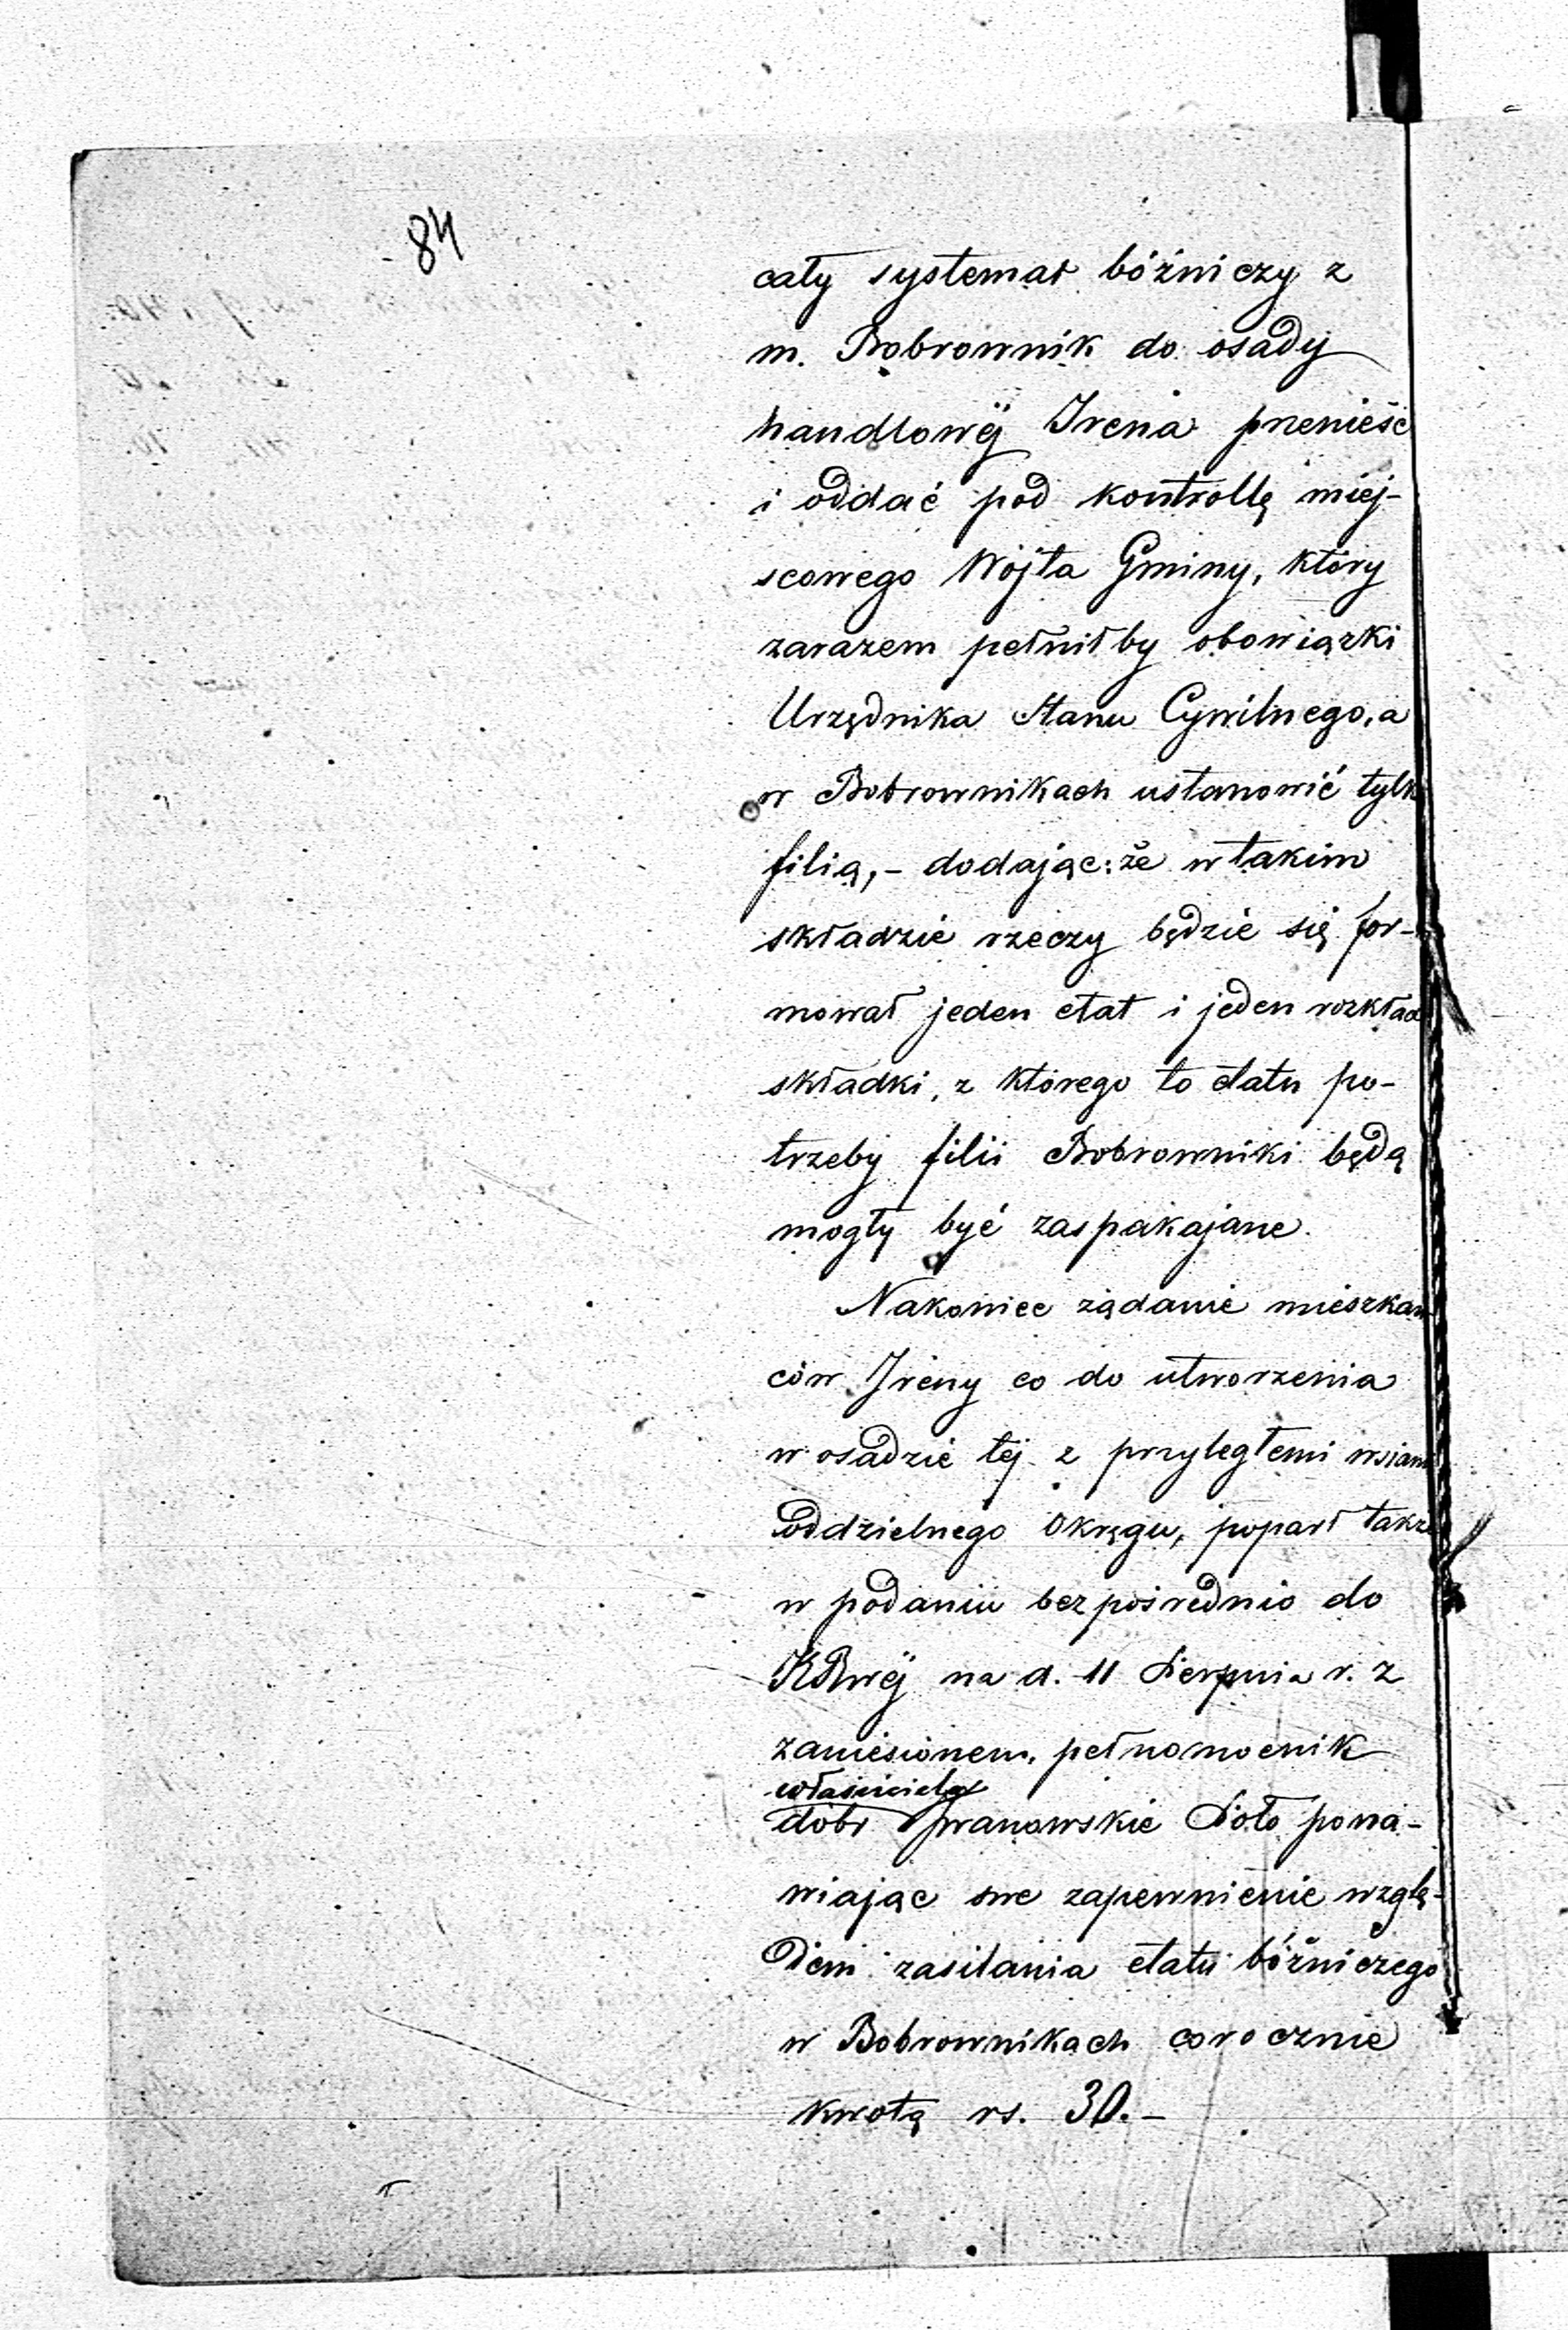 84
cały systemat bóżniczy z
m. Bobrownik do osady
handlowéj Irena przenieść
i oddać pod kontrollę miej-
scowego Wójta Gminy, który
zarazem pełniłby obowiązki
Urzędnika Stanu Cywilnego, a
w Bobrownikach ustanowić tylk
filią,- dodając: że w takim
składzie rzeczy będzie się for-
mował jeden etat i jeden rozkład
składki, z którego to etatu po-
trzeby filii Bobrowniki będą
mogły być zaspakajane.
Nakoniec żądanie mieszkań
ców Ireny co do utworzenia
w osadzie téj z przyległemi wsiami
oddzielnego Okręgu, poparł także
w podaniu bezpośrednio do
KRwéj na d. 11 Sierpnia r. z
zaniesionem, pełnomocnik
właściciela
dóbr Iwanowskie Sioło pona-
wiając swe zapewnienie wzglę-
dem zasilania etatu bóżniczego
w Bobrownikach corocznie
kwotą rs. 30.-